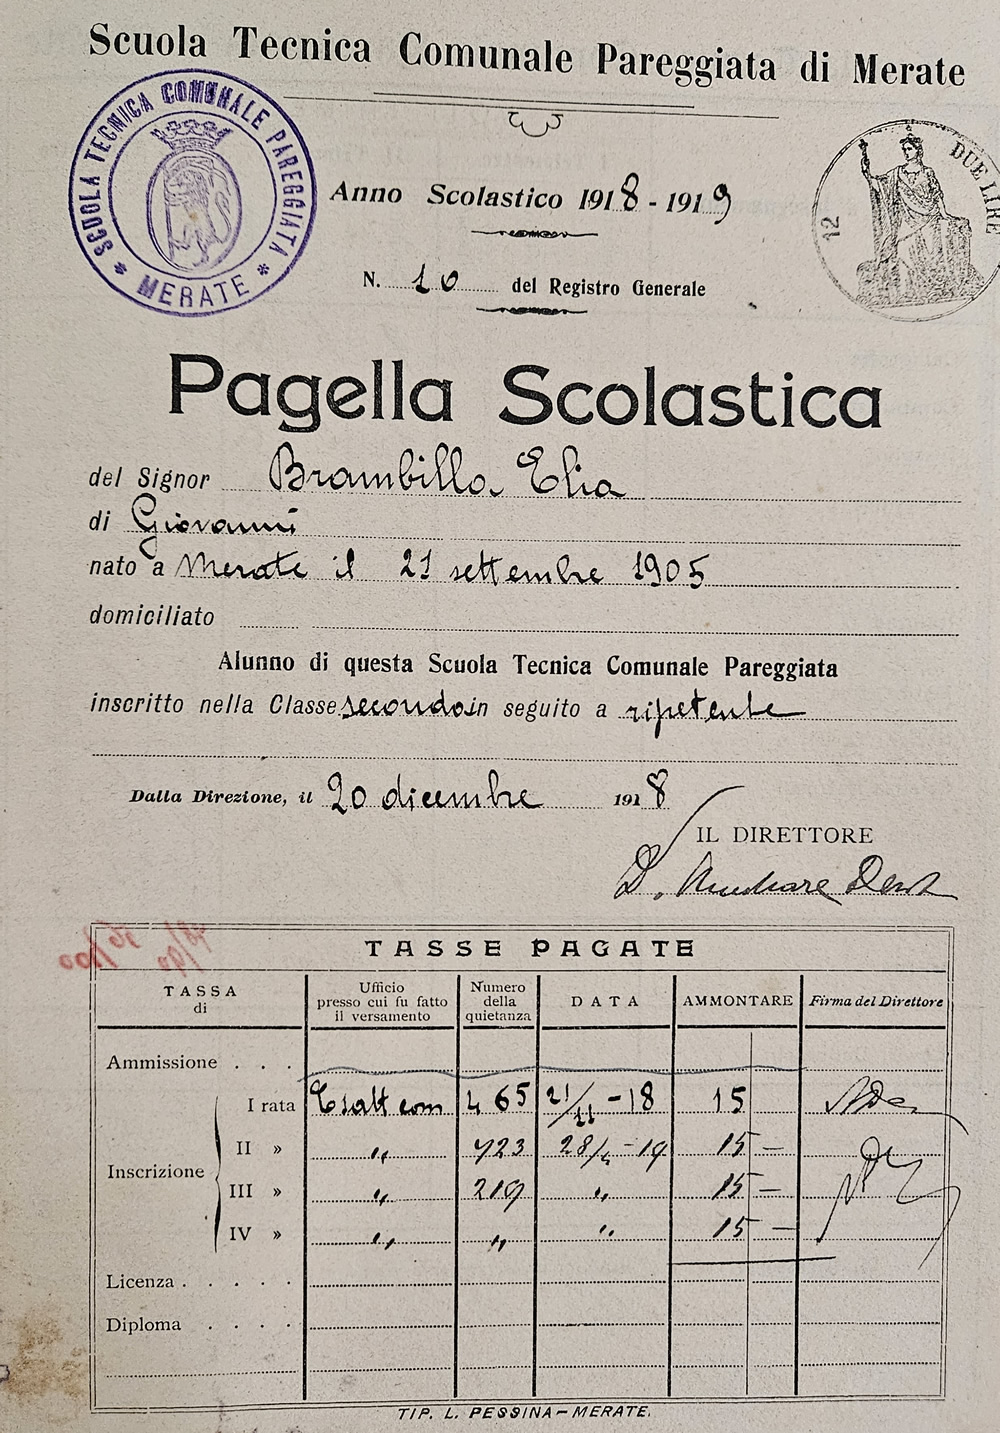 Scuola Tecnica Comunale Pareggiata di Merate
SCUOLA TECNICA COMUNALE PAREGGIATA
* MERATE *
DUE LIRE
12
Anno Scolastico 1918 - 1919
N. 10 del Registro Generale
Pagella Scolastica
del Signor Brambilla Elia
di Giovanni
nato a Merate il 21 settembre 1905
domiciliato
Alunno di questa Scuola Tecnica Comunale Pareggiata
inscritto nella Classe seconda in seguito a ripetente
Dalla Direzione, il 20 dicembre 1918
IL DIRETTORE
D.
TASSE PAGATE
TASSA di Ufficio presso cui fu fatto il versamento Numero della quietanza DATA AMMONTARE Firma del Direttore
Ammissione . . .
I rata Esatt com 465 21/11 - 18 15
Inscrizione
II » " 723 28/4 - 19 15 —
III » " 219 " 15 —
IV » " " " 15 —
Licenza . . . . .
Diploma . . . .
TIP. L. PESSINA - MERATE.